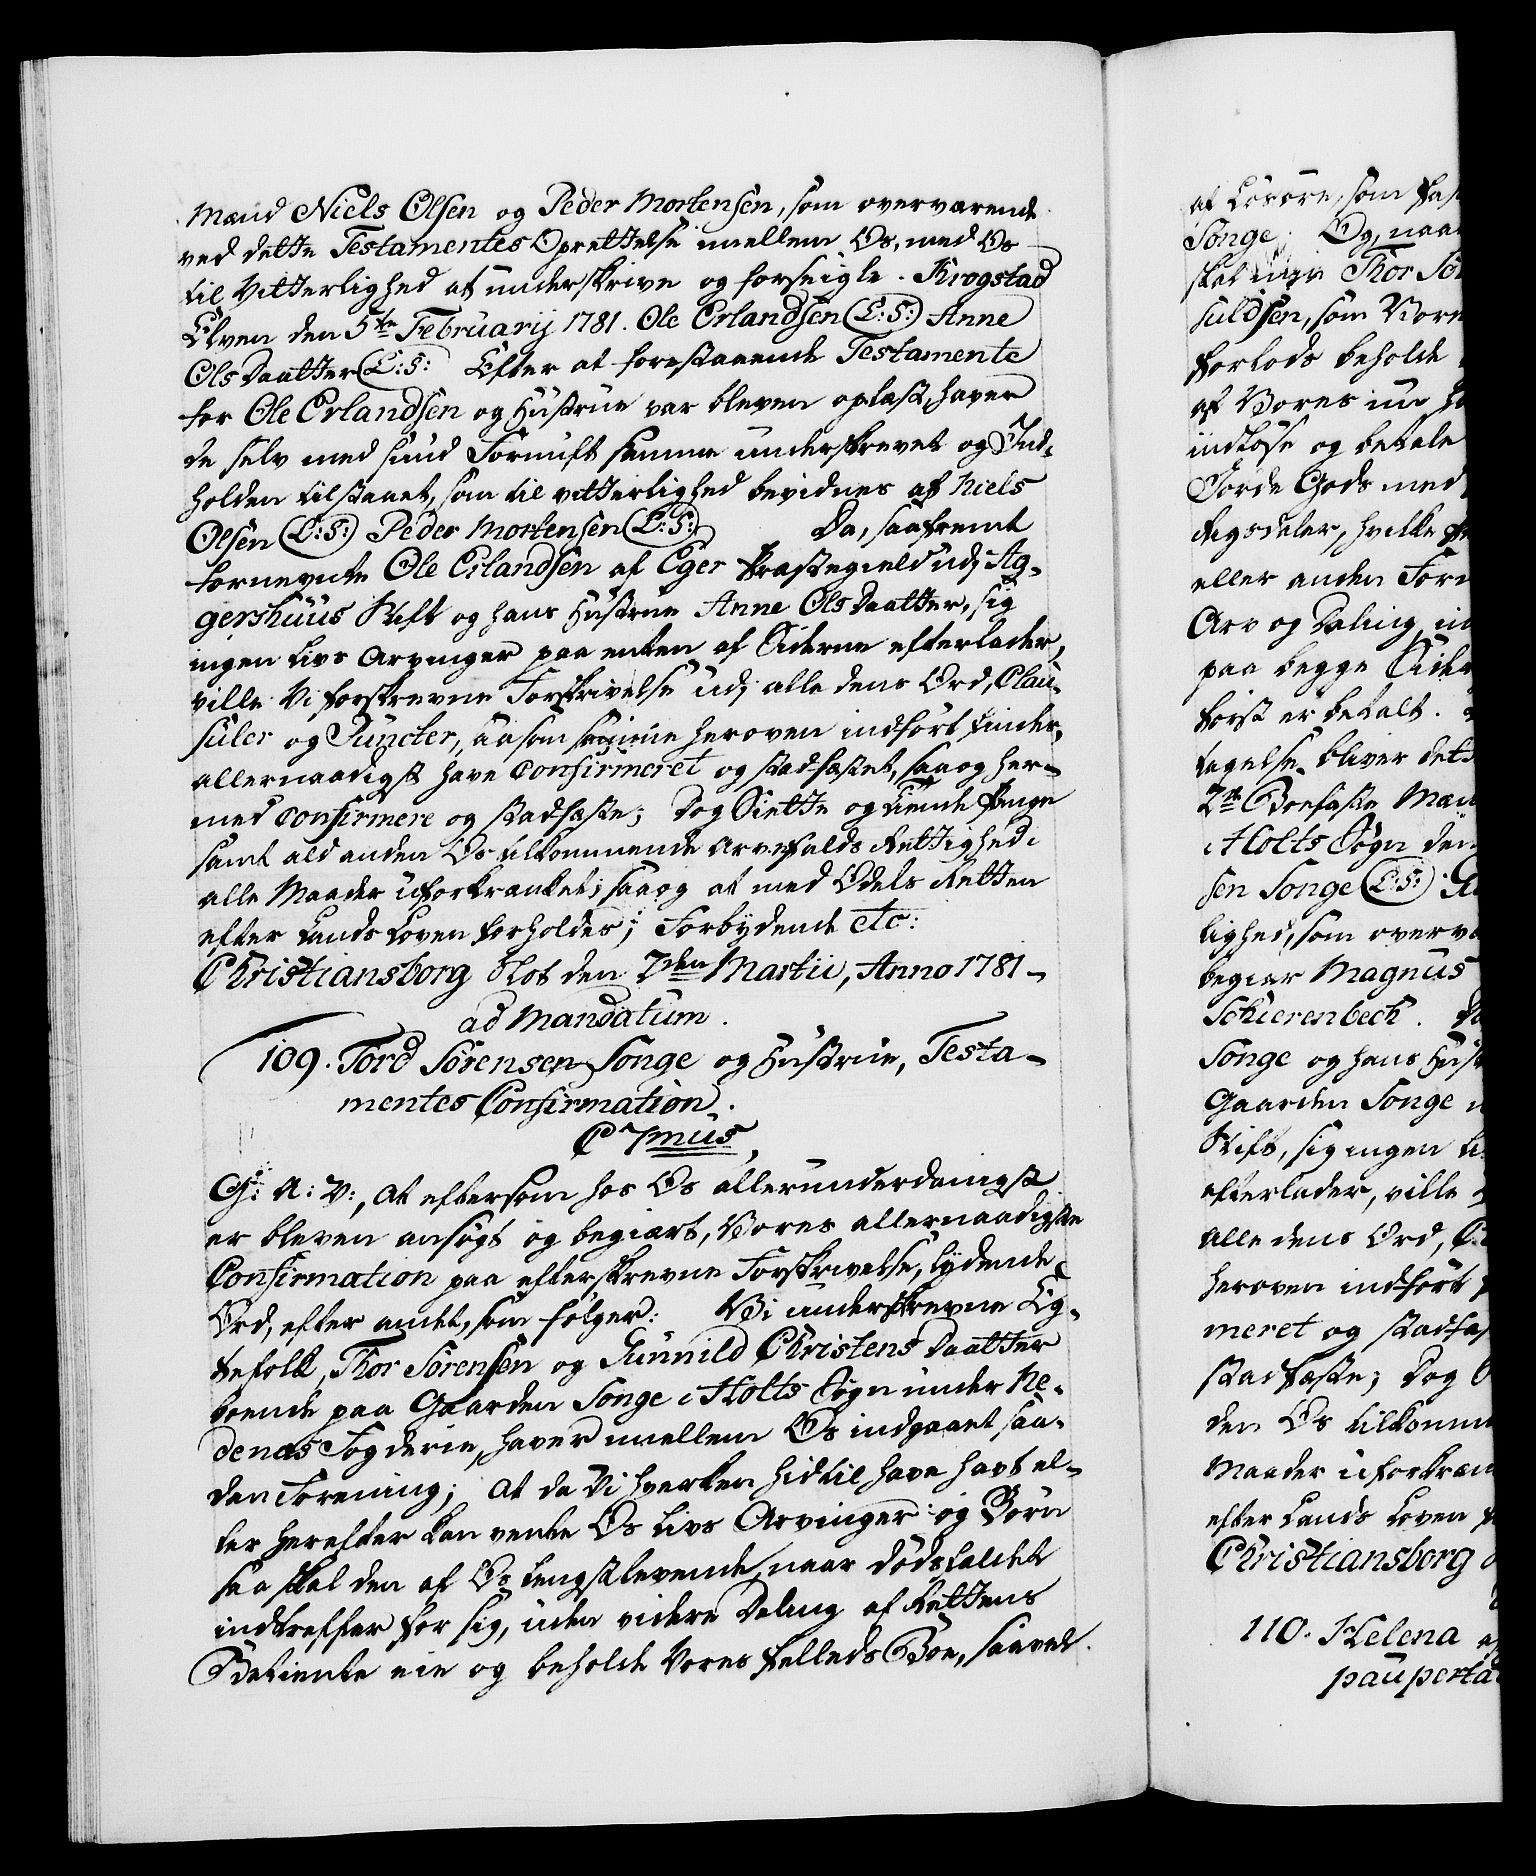 Mænd Niels Olsen og Peder Mortensen, som overværende
ved dette Testamentes Oprettelse imellem Os, med Os
til Vitterlighed at underskrive og forseigle. Krogstad
Elven den 5te Februarij 1781. Ole Erlandsen (L:S:) Anne
Olsdaatter (L:S: Efter at forestaaende Testamente
for Ole Erlandsen og Hustrue var bleven oplæst, haver
de selv med sund Fornuft samme underskrevet og Ind-
holden tilstaaet, som til vitterlighed bevidnes af Niels
Olsen (L:S:) Peder Mortensen (L:S:) Da, saafremt
fornevnte Ole Erlandsen af Eger Præstegield udi Ag-
gershuus Stift og hans Hustrue Anne Olsdaatter, sig
ingen Livs Arvinger paa enten af Siderne efterlader,
ville Vi forskrevne Forskrivelse udi alle dens Ord, Clau-
suler og Puncter, saasom samme heroven indført findes,
allernaadigst have Confirmeret og stadfæstet, saa og her-
med Confirmere og stadfæste; Dog Siette og Tiende Penge
samt ald anden Os tilkommende Arvefalds Rettighed i
alle Maader uforkrænket; saa og at med Odels Retten
efter Lands Loven forholdes; Forbydende etc:
Christiansborg Slot den 7den Martii, Anno 1781-
ad Mandatum.
109. Tord Sørensen Songe og Hustrue, Testa-
mentes Confirmation.
C 7mus
G: A: V:, At eftersom hos Os allerunderdanigst
er bleven ansøgt og begiært, Vores allernaadigste
Confirmation paa efterskrevne Forskrivelse, lydende
Ord, efter andet, som følger: Vi underskrevne Eg-
tefolk, Thor Sørensen og Gunnild Christensdaatter
boende paa Gaarden Songe i Holts Sogn under Ne-
denæs Fogderie, haver imellem Os indgaaet saa-
dan Forening; At da Vi hverken hidtil have havt el-
ler herefter kan vente Os Livs Arvinger og Børn
saa skal den af Os længstlevende, naar dødsfaldet
indtreffer for sig, uden videre Deling af Rettens
Betiente eie og beholde Vores Fælleds Boe, saavel
af Løsøre, som fas
Songe. Og, naar
skal min Thor Sør
suldsen, som Vore
forlods beholde
af Vores
indløse og betale
Jorde Gods med
Rigsdaler, hvilke
eller anden For
Arv og Deling, in
paa begge Sider
først er betalt.
tagelse bliver det
2de Boefaste Mæn
i Holts Sogn den
sen Songe (L:S:)
lighed, som overvæ
begiær Magnus
Schierenbeck.
Songe og hans Hust
Gaarden Songe
Stift, sig ingen Li
efterlader, ville
alle dens Ord, Cl
heroven indført
meret og stadfæs
stadfæste; Dog
den Os tilkomm
Maader uforkræn
efter Lands Loven
Christiansborg
110. Helena
paupertat